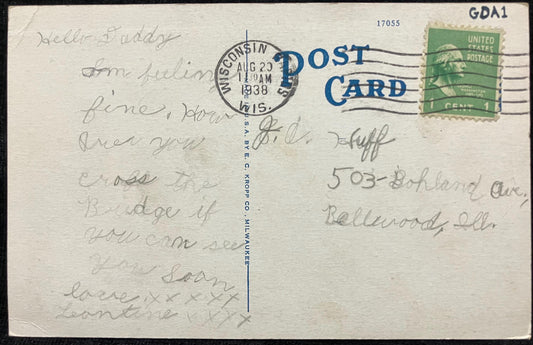 GDA1
17055
UNITED
STATES
POSTAGE
1 CENT 1
WISCONSIN
AUG 20
AM
1938
WIS.
POST
CARD
Hello Daddy
Im feelin
fine. How
are you
cross the
Bridge if
you can see
you soon
love. xxxxx
Leontine xxxx
U.S.A. BY E. C. KROPP CO., MILWAUKEE
J. C. Huff
503 Bohland Ave,
Bellwood, Ill.